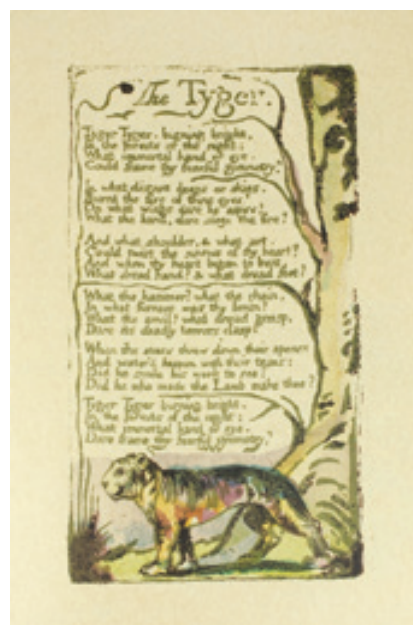 The Tyger.
Tyger Tyger, burning bright,
In the forests of the night:
What immortal hand or eye,
Could frame thy fearful symmetry?
In what distant deeps or skies,
Burnt the fire of thine eyes?
On what wings dare he aspire?
What the hand, dare sieze the fire?
And what shoulder, & what art,
Could twist the sinews of thy heart?
And when thy heart began to beat,
What dread hand? & what dread feet?
What the hammer? what the chain,
In what furnace was thy brain?
What the anvil? what dread grasp,
Dare its deadly terrors clasp?
When the stars threw down their spears
And water'd heaven with their tears:
Did he smile his work to see?
Did he who made the Lamb make thee?
Tyger Tyger burning bright,
In the forests of the night:
What immortal hand or eye,
Dare frame thy fearful symmetry?